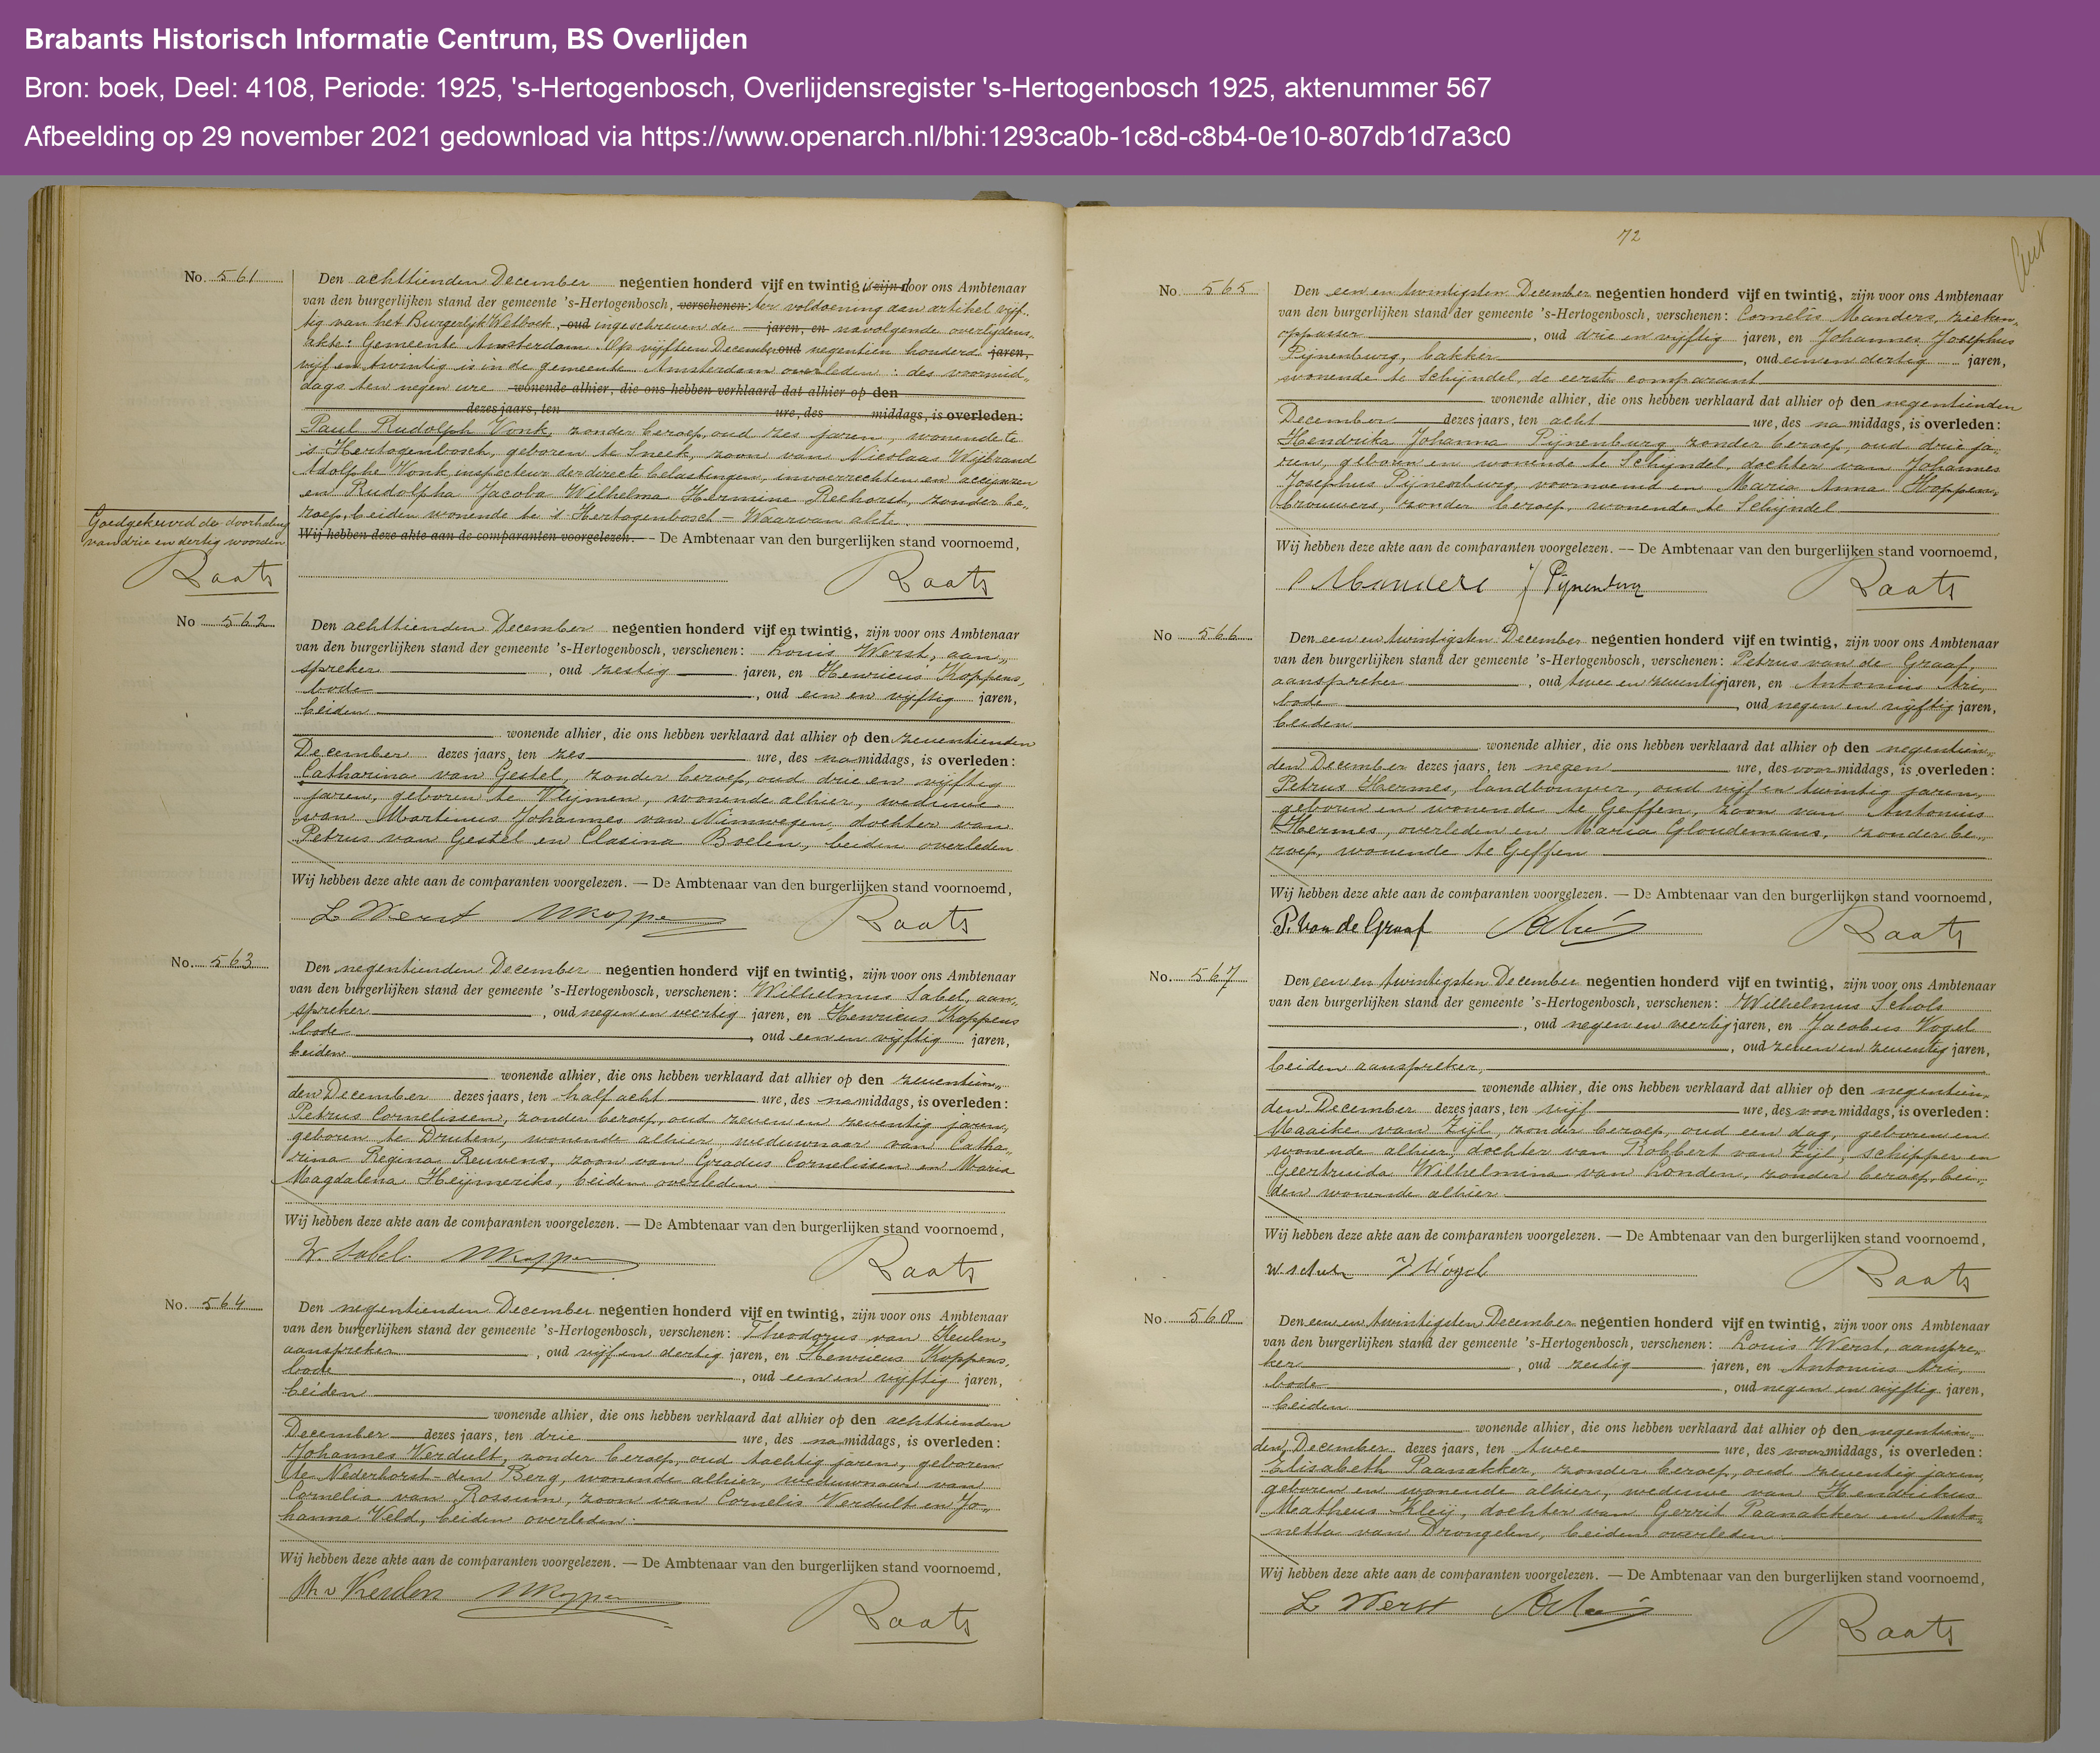 Brabants Historisch Informatie Centrum, BS Overlijden
Bron: boek, Deel: 4108, Periode: 1925, 's-Hertogenbosch, Overlijdensregister 's-Hertogenbosch 1925, aktenummer 567
Afbeelding op 29 november 2021 gedownload via https://www.openarch.nl/bhi:1293ca0b-1c8d-c8b4-0e10-807db1d7a3c0
No. 561
Den achttienden December negentien honderd vijf en twintig is zijn door ons Ambtenaar
van den burgerlijken stand der gemeente 's-Hertogenbosch, verschenen: ter voldoening aan artikel vijf-
tig van het Burgerlijk Wetboek, oud ingeschreven de jaren, en navolgende overlijdens-
akte: Gemeente Amsterdam. Op vijftien December oud negentien honderd jaren,
vijf en twintig is in de gemeente Amsterdam overleden: des voormid-
dags ten negen ure wonende alhier, die ons hebben verklaard dat alhier op den
dezes jaars, ten ure, des middags, is overleden:
Paul Rudolph Vonk, zonder beroep, oud zes jaren, wonende te
's Hertogenbosch, geboren te Sneek, zoon van Nicolaas Wijbrand
Adolphe Vonk, inspecteur der directe belastingen, invoerrechten en accijnzen
en Rudolpha Jacoba Wilhelma Hermine Reehorst, zonder be-
roep, beiden wonende te 's Hertogenbosch - Waarvan akte.
Wij hebben deze akte aan de comparanten voorgelezen. — De Ambtenaar van den burgerlijken stand voornoemd,
Raats
Goedgekeurd de doorhaling
van drie en dertig woorden
Raats
No 562
Den achttienden December negentien honderd vijf en twintig, zijn voor ons Ambtenaar
van den burgerlijken stand der gemeente 's-Hertogenbosch, verschenen: Louis Werst, aan-
spreker, oud zestig jaren, en Henricus Koppens,
bode, oud een en vijftig jaren,
beiden
wonende alhier, die ons hebben verklaard dat alhier op den zeventienden
December dezes jaars, ten zes ure, des namiddags, is overleden:
Catharina van Gestel, zonder beroep, oud drie en vijftig
jaren, geboren te Vlijmen, wonende alhier, weduwe
van Martinus Johannes van Nimwegen, dochter van
Petrus van Gestel en Clasina Boelen, beiden overleden
Wij hebben deze akte aan de comparanten voorgelezen. — De Ambtenaar van den burgerlijken stand voornoemd,
L Werst HKoppens Raats
No. 563
Den negentienden December negentien honderd vijf en twintig, zijn voor ons Ambtenaar
van den burgerlijken stand der gemeente 's-Hertogenbosch, verschenen: Wilhelmus Sabel, aan-
spreker, oud negen en veertig jaren, en Henricus Koppens
bode, oud een en vijftig jaren,
beiden
wonende alhier, die ons hebben verklaard dat alhier op den zeventien-
den December dezes jaars, ten half acht ure, des namiddags, is overleden:
Petrus Cornelissen, zonder beroep, oud zeven en zeventig jaren,
geboren te Druten, wonende alhier, weduwnaar van Catha-
rina Regina Reuvens, zoon van Gradus Cornelissen en Maria
Magdalena Heijmeriks, beiden overleden
Wij hebben deze akte aan de comparanten voorgelezen. — De Ambtenaar van den burgerlijken stand voornoemd,
W. Sabel. HKoppens Raats
No. 564
Den negentienden December negentien honderd vijf en twintig, zijn voor ons Ambtenaar
van den burgerlijken stand der gemeente 's-Hertogenbosch, verschenen: Theodorus van Keulen,
aanspreker, oud vijf en dertig jaren, en Henricus Koppens,
bode, oud een en vijftig jaren,
beiden
wonende alhier, die ons hebben verklaard dat alhier op den achttienden
December dezes jaars, ten drie ure, des namiddags, is overleden:
Johannes Verdult, zonder beroep, oud tachtig jaren, geboren
te Nederhorst-den Berg, wonende alhier, weduwnaar van
Cornelia van Rossum, zoon van Cornelis Verdult en Jo-
hanna Veld, beiden overleden:
Wij hebben deze akte aan de comparanten voorgelezen. — De Ambtenaar van den burgerlijken stand voornoemd,
Th v Keulen HKoppens Raats
72
No. 565
Den een en twintigsten December negentien honderd vijf en twintig, zijn voor ons Ambtenaar
van den burgerlijken stand der gemeente 's-Hertogenbosch, verschenen: Cornelis Manders, zieken-
oppasser, oud drie en vijftig jaren, en Johannes Josephus
Pijnenburg, bakker, oud een en dertig jaren,
wonende te Schijndel, de eerste comparant
wonende alhier, die ons hebben verklaard dat alhier op den negentienden
December dezes jaars, ten acht ure, des namiddags, is overleden:
Hendrika Johanna Pijnenburg zonder beroep, oud drie ja-
ren, geboren en wonende te Schijndel, dochter van Johannes
Josephus Pijnenburg, voornoemd en Maria Anna Koppen-
brouwers, zonder beroep, wonende te Schijndel
Wij hebben deze akte aan de comparanten voorgelezen. — De Ambtenaar van den burgerlijken stand voornoemd,
C Manders J Pijnenburg Raats
No 566
Den een en twintigsten December negentien honderd vijf en twintig, zijn voor ons Ambtenaar
van den burgerlijken stand der gemeente 's-Hertogenbosch, verschenen: Petrus van de Graaf,
aanspreker, oud twee en zeventig jaren, en Antonius Ari,
bode, oud negen en vijftig jaren,
beiden
wonende alhier, die ons hebben verklaard dat alhier op den negentien-
den December dezes jaars, ten negen ure, des voormiddags, is overleden:
Petrus Hermes, landbouwer, oud vijf en twintig jaren,
geboren en wonende te Geffen, zoon van Antonius
Hermes, overleden en Maria Gloudemans, zonder be-
roep, wonende te Geffen
Wij hebben deze akte aan de comparanten voorgelezen. — De Ambtenaar van den burgerlijken stand voornoemd,
P. van de Graaf Raats
No. 567
Den een en twintigsten December negentien honderd vijf en twintig, zijn voor ons Ambtenaar
van den burgerlijken stand der gemeente 's-Hertogenbosch, verschenen: Wilhelmus Schols
, oud negen en veertig jaren, en Jacobus Vogel
, oud zeven en zeventig jaren,
beiden aanspreker,
wonende alhier, die ons hebben verklaard dat alhier op den negentien-
den December dezes jaars, ten vijf ure, des voormiddags, is overleden:
Maaike van Zijl, zonder beroep, oud een dag, geboren en
wonende alhier, dochter van Robbert van Zijl, schipper en
Geertruida Wilhelmina van Londen, zonder beroep, bei-
den wonende alhier
Wij hebben deze akte aan de comparanten voorgelezen. — De Ambtenaar van den burgerlijken stand voornoemd,
W. Schols J Vogel Raats
No. 568
Den een en twintigsten December negentien honderd vijf en twintig, zijn voor ons Ambtenaar
van den burgerlijken stand der gemeente 's-Hertogenbosch, verschenen: Louis Werst, aanspre-
ker, oud zestig jaren, en Antonius Ari,
bode, oud negen en vijftig jaren,
beiden
wonende alhier, die ons hebben verklaard dat alhier op den negentien-
den December dezes jaars, ten twee ure, des voormiddags, is overleden:
Elisabeth Paanakker, zonder beroep, oud zeventig jaren,
geboren en wonende alhier, weduwe van Hendrikus
Matheus Kleij, dochter van Gerrit Paanakker en Anto-
netta van Drongelen, beiden overleden
Wij hebben deze akte aan de comparanten voorgelezen. — De Ambtenaar van den burgerlijken stand voornoemd,
L Werst Raats